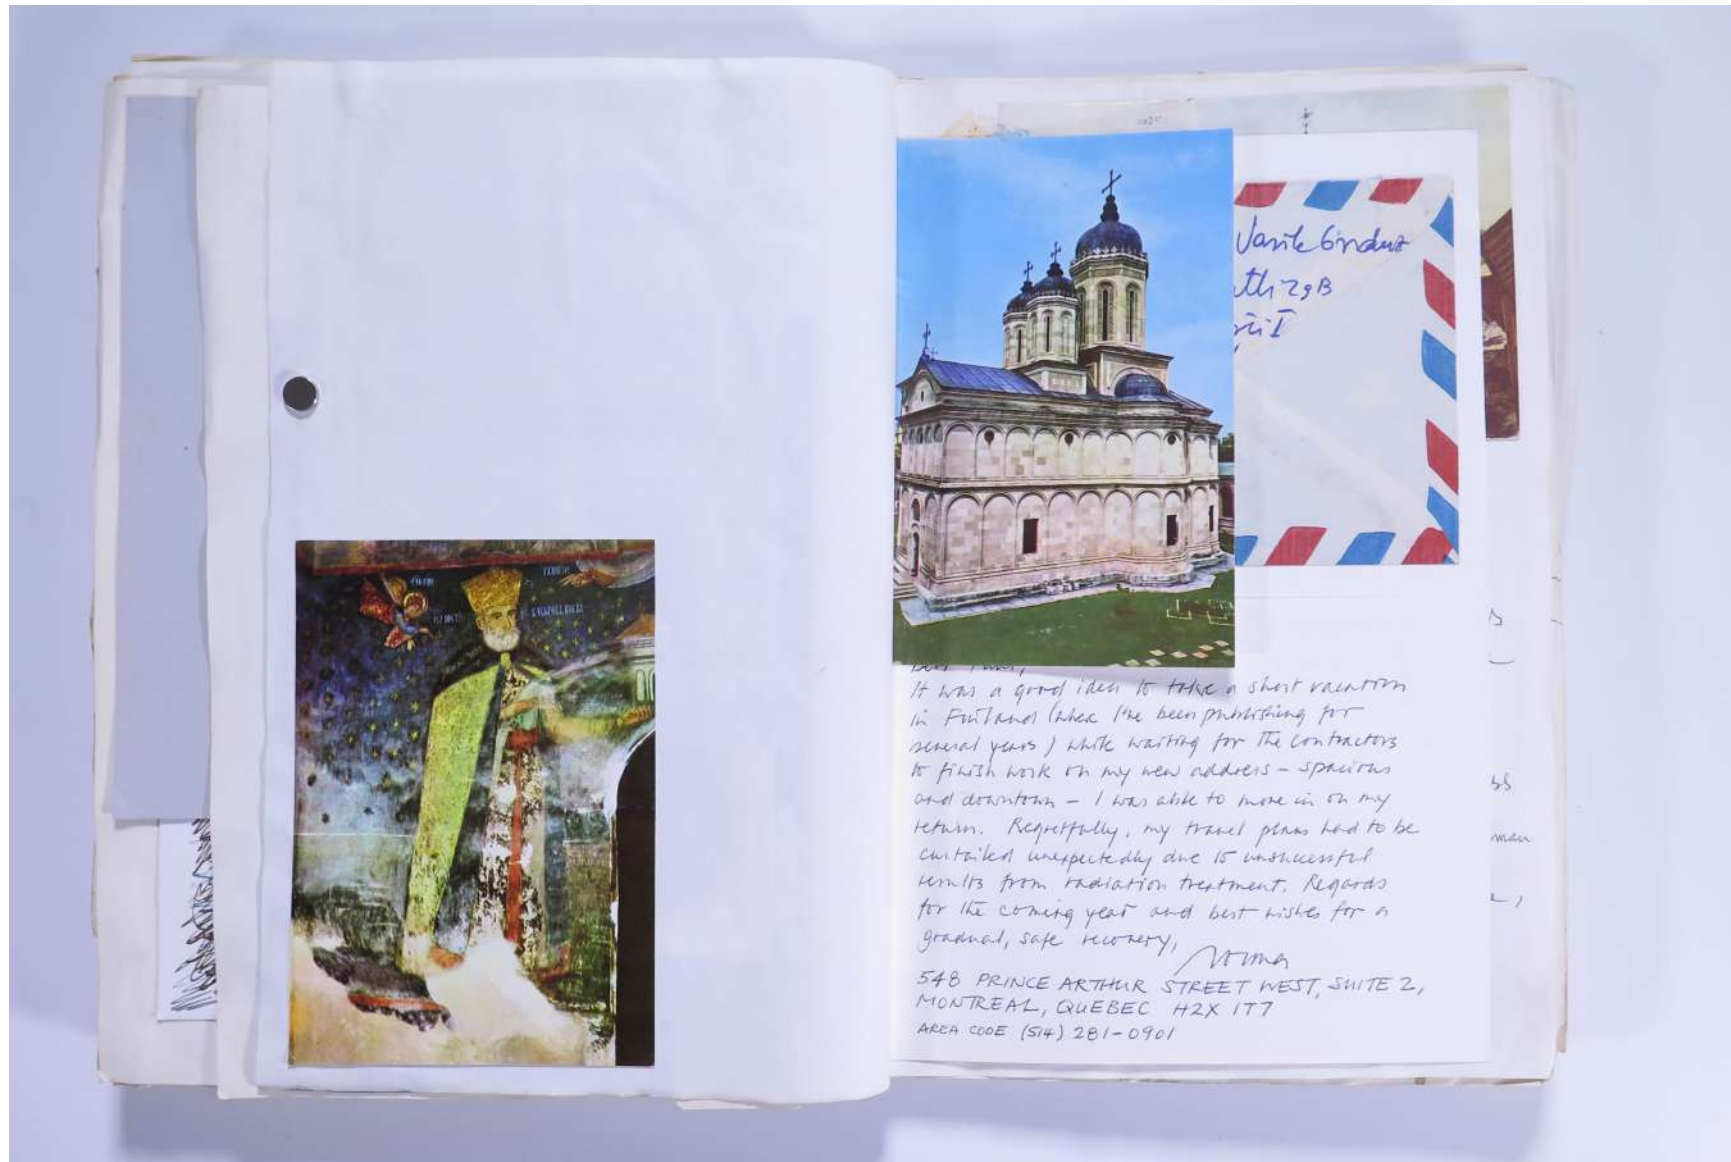 It was a good idea to take a short vacation
in Finland (where I've been publishing for
several years) while waiting for the contractors
to finish work on my new address – spacious
and downtown – I was able to move in on my
return. Regretfully, my travel plans had to be
curtailed unexpectedly due to unsuccessful
results from radiation treatment. Regards
for the coming year and best wishes for a
gradual, safe recovery,
548 PRINCE ARTHUR STREET WEST, SUITE 2,
MONTREAL, QUEBEC H2X 1T7
AREA CODE (514) 281-0901